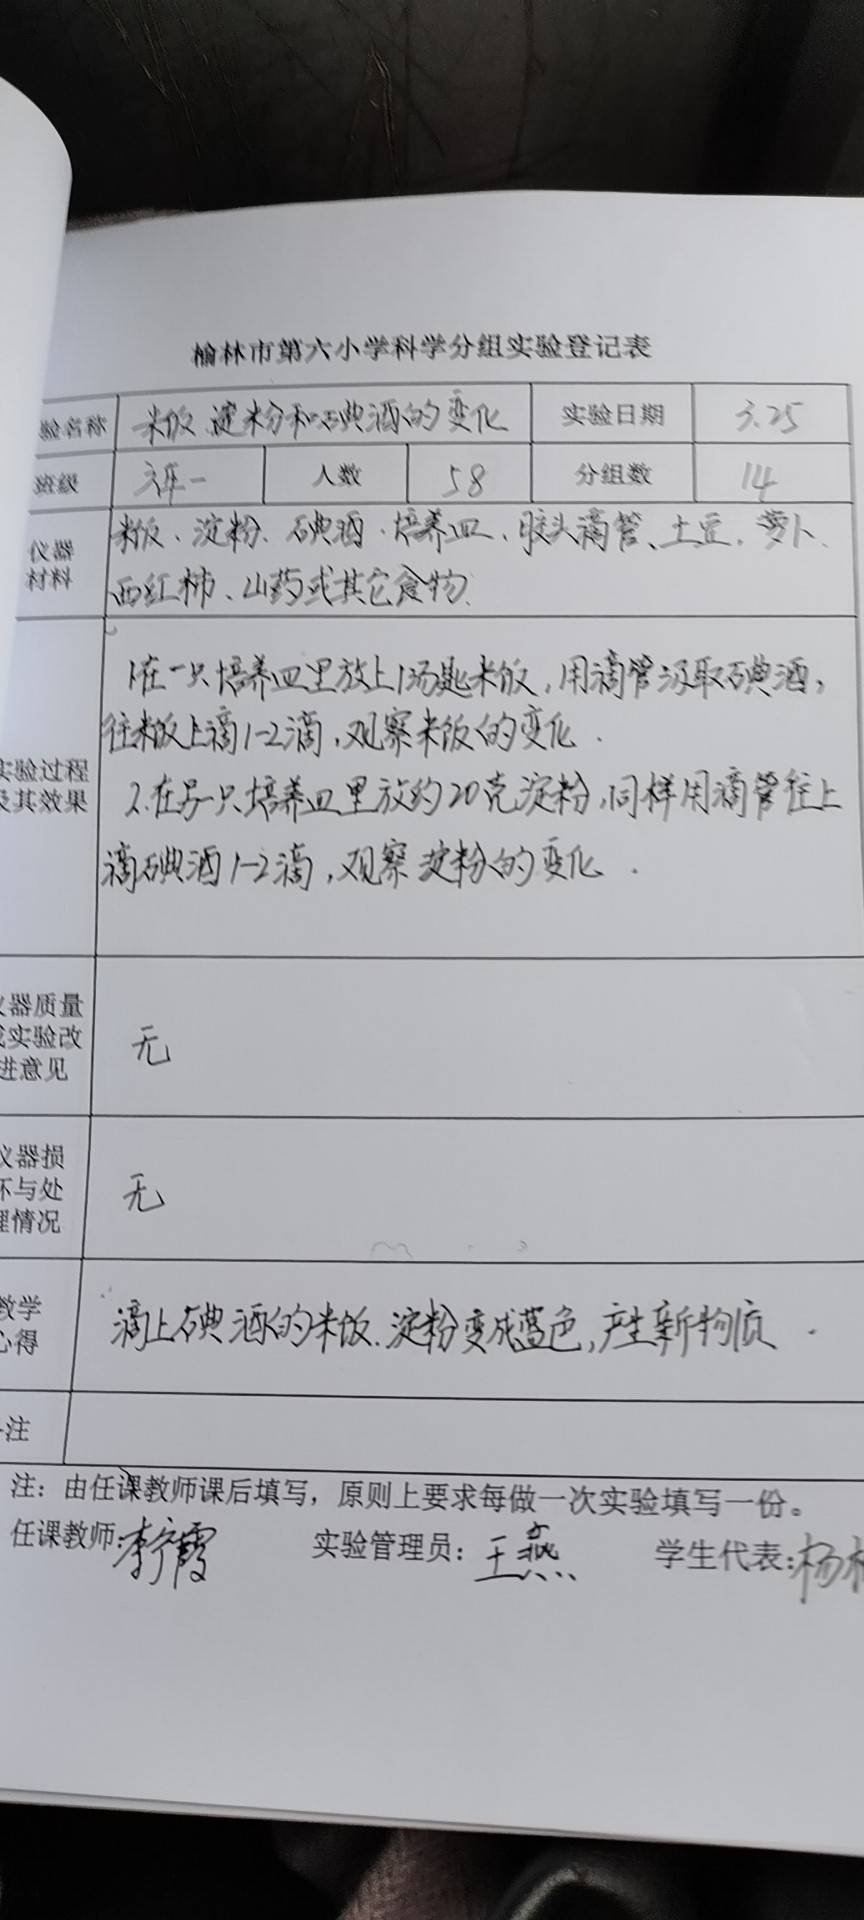 榆林市第六小学科学分组实验登记表
验名称 米饭、淀粉和碘酒的变化 实验日期 3.25
班级 六年一 人数 58 分组数 14
仪器
材料
米饭、淀粉、碘酒、培养皿、胶头滴管、土豆、萝卜、
西红柿、山药或其它食物.
实验过程
及其效果
1.在一只培养皿里放上1汤匙米饭,用滴管汲取碘酒,
往米饭上滴1-2滴,观察米饭的变化.
2.在另一只培养皿里放约20克淀粉,同样用滴管往上
滴碘酒1-2滴,观察淀粉的变化.
仪器质量
或实验改
进意见
无
仪器损
坏与处
理情况
无
教学
心得
滴上碘酒的米饭.淀粉变成蓝色,产生新物质.
注
注:由任课教师课后填写,原则上要求每做一次实验填写一份。
任课教师:李霞 实验管理员:王燕 学生代表:杨